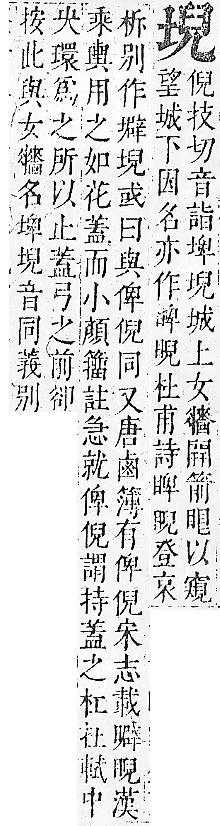 堄
倪技切音詣埤堄城上女牆開箭眼以窺
望城下因名亦作睥睨杜甫詩睥睨登哀
柝別作壀堄或曰與俾倪同又唐鹵簿有俾倪宋志載睥睨漢
乘輿用之如花蓋而小顏籀註急就俾倪謂持蓋之杠在軾中
央環爲之所以止蓋弓之前卻
按此與女牆名埤堄音同義別